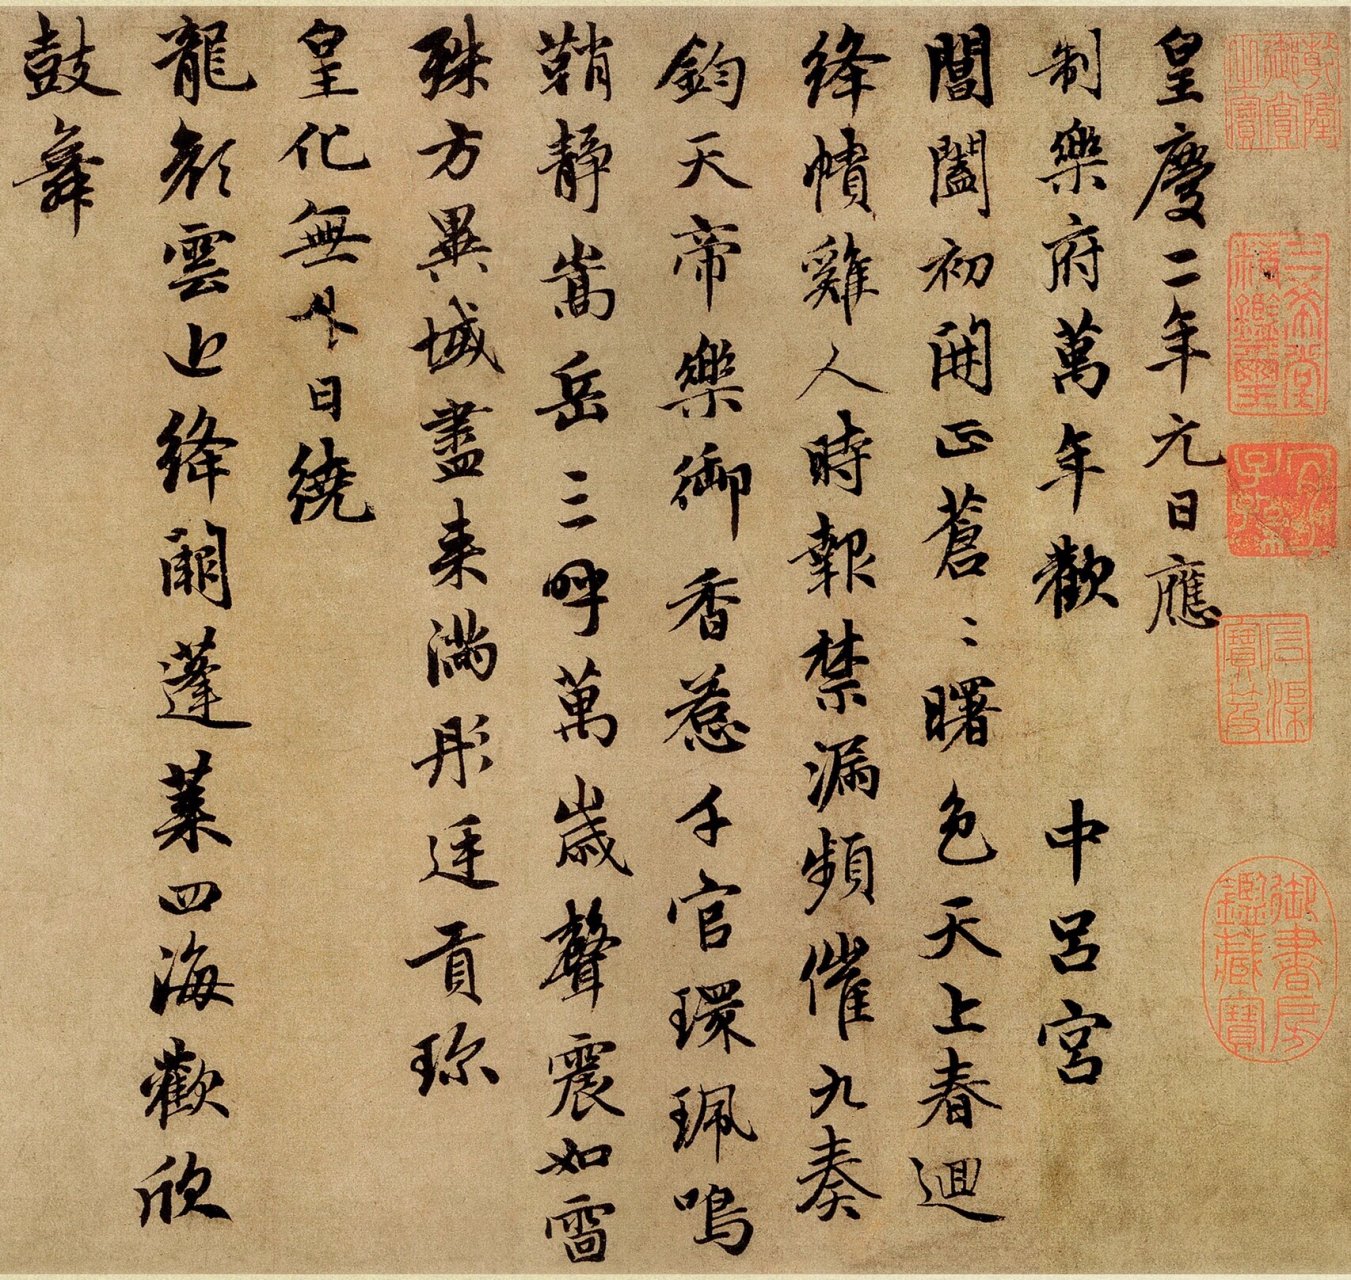 皇慶二年元日應
制樂府萬年歡 中呂宮
閶闔初開正蒼〻曙色天上春迴
絳幘雞人時報禁漏頻催九奏
鈞天帝樂御香惹千官環珮鳴
鞘靜嵩岳三呼萬歲聲震如雷
殊方異域盡来滿彤廷貢珎
皇化無外日繞
龍顏雲近絳闕蓬萊四海歡欣
鼓舞
三希堂精鑑璽
宜子孫
石渠寶笈
御書房鑑藏寶